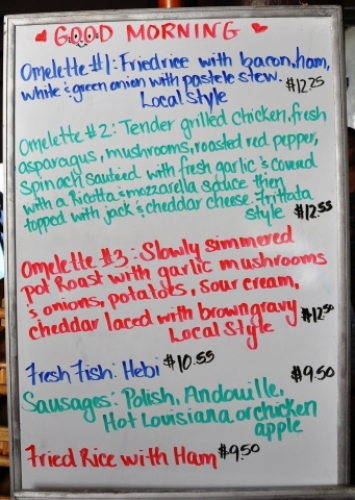 GOOD MORNING
Omelette #1: Fried rice with bacon, ham,
white & green onion with pastele stew. $12.25
Local style
Omelette #2: Tender grilled chicken, fresh
asparagus, mushrooms, roasted red pepper,
Spinach sauteed with fresh garlic & covered
with a Ricotta & mozzarella sauce then
topped with jack & cheddar cheese. Frittata
style $12.55
Omelette #3: Slowly simmered
pot Roast with garlic mushrooms
& onions, potatoes, sour cream,
cheddar laced with brown gravy $12.50
Local Style
Fresh Fish: Hebi $10.55
Sausages: Polish, Andouille, $9.50
Hot Louisiana or chicken
apple
Fried Rice with Ham $9.50